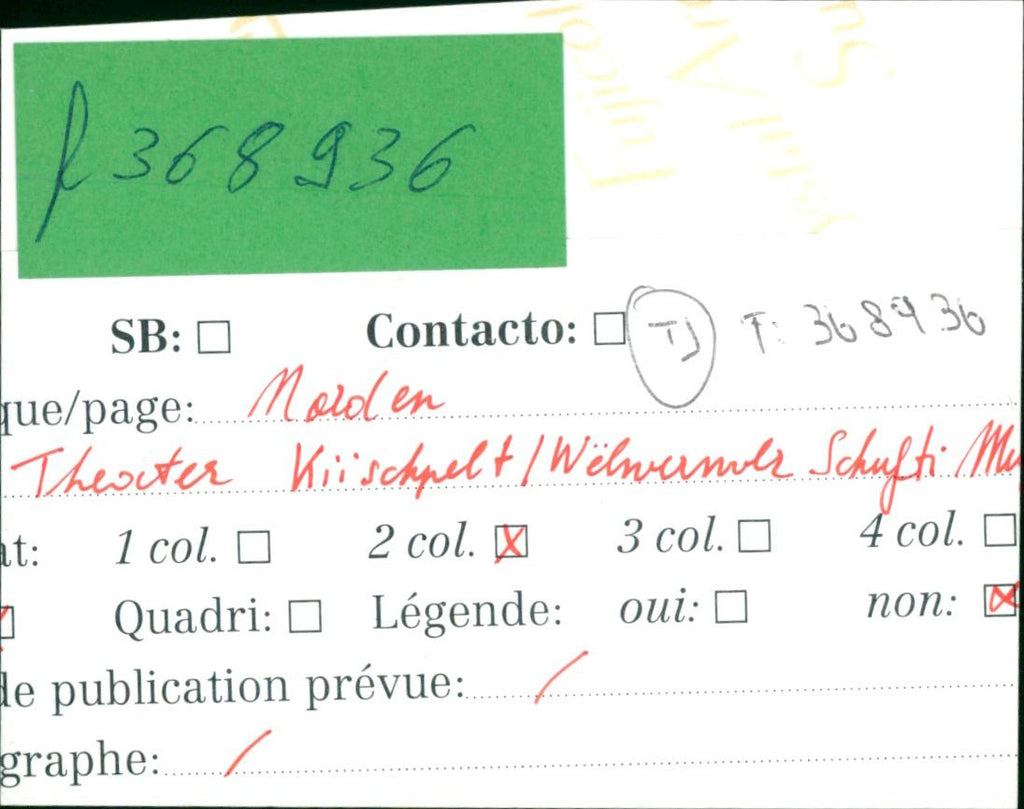 f 368936
SB: ☐ Contacto: ☐ TJ F: 368936
que/page: Norden
Theater Kiischpelt / Wëlwerwolz Schufti
at: 1 col. ☐ 2 col. ☒ 3 col. ☐ 4 col. ☐
Quadri: ☐ Légende: oui: ☐ non: ☒
de publication prévue: /
graphe: /